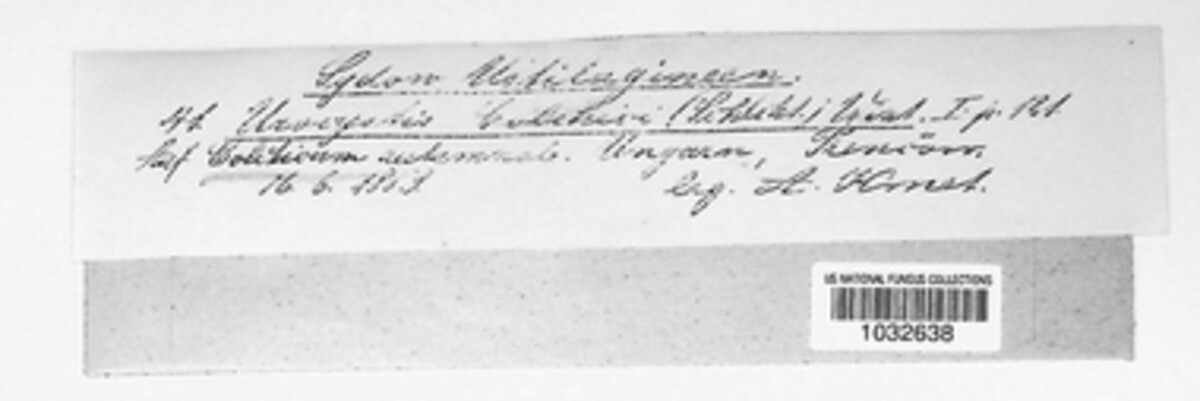 Sydow Ustilagineen.
Urocystis Colchici (Schlecht.) Wint. I. p.
auf Colchicum autumnale. Ungarn, Trencsén.
16. 6.
leg. A. Kmet.
US NATIONAL FUNGUS COLLECTIONS
1032638